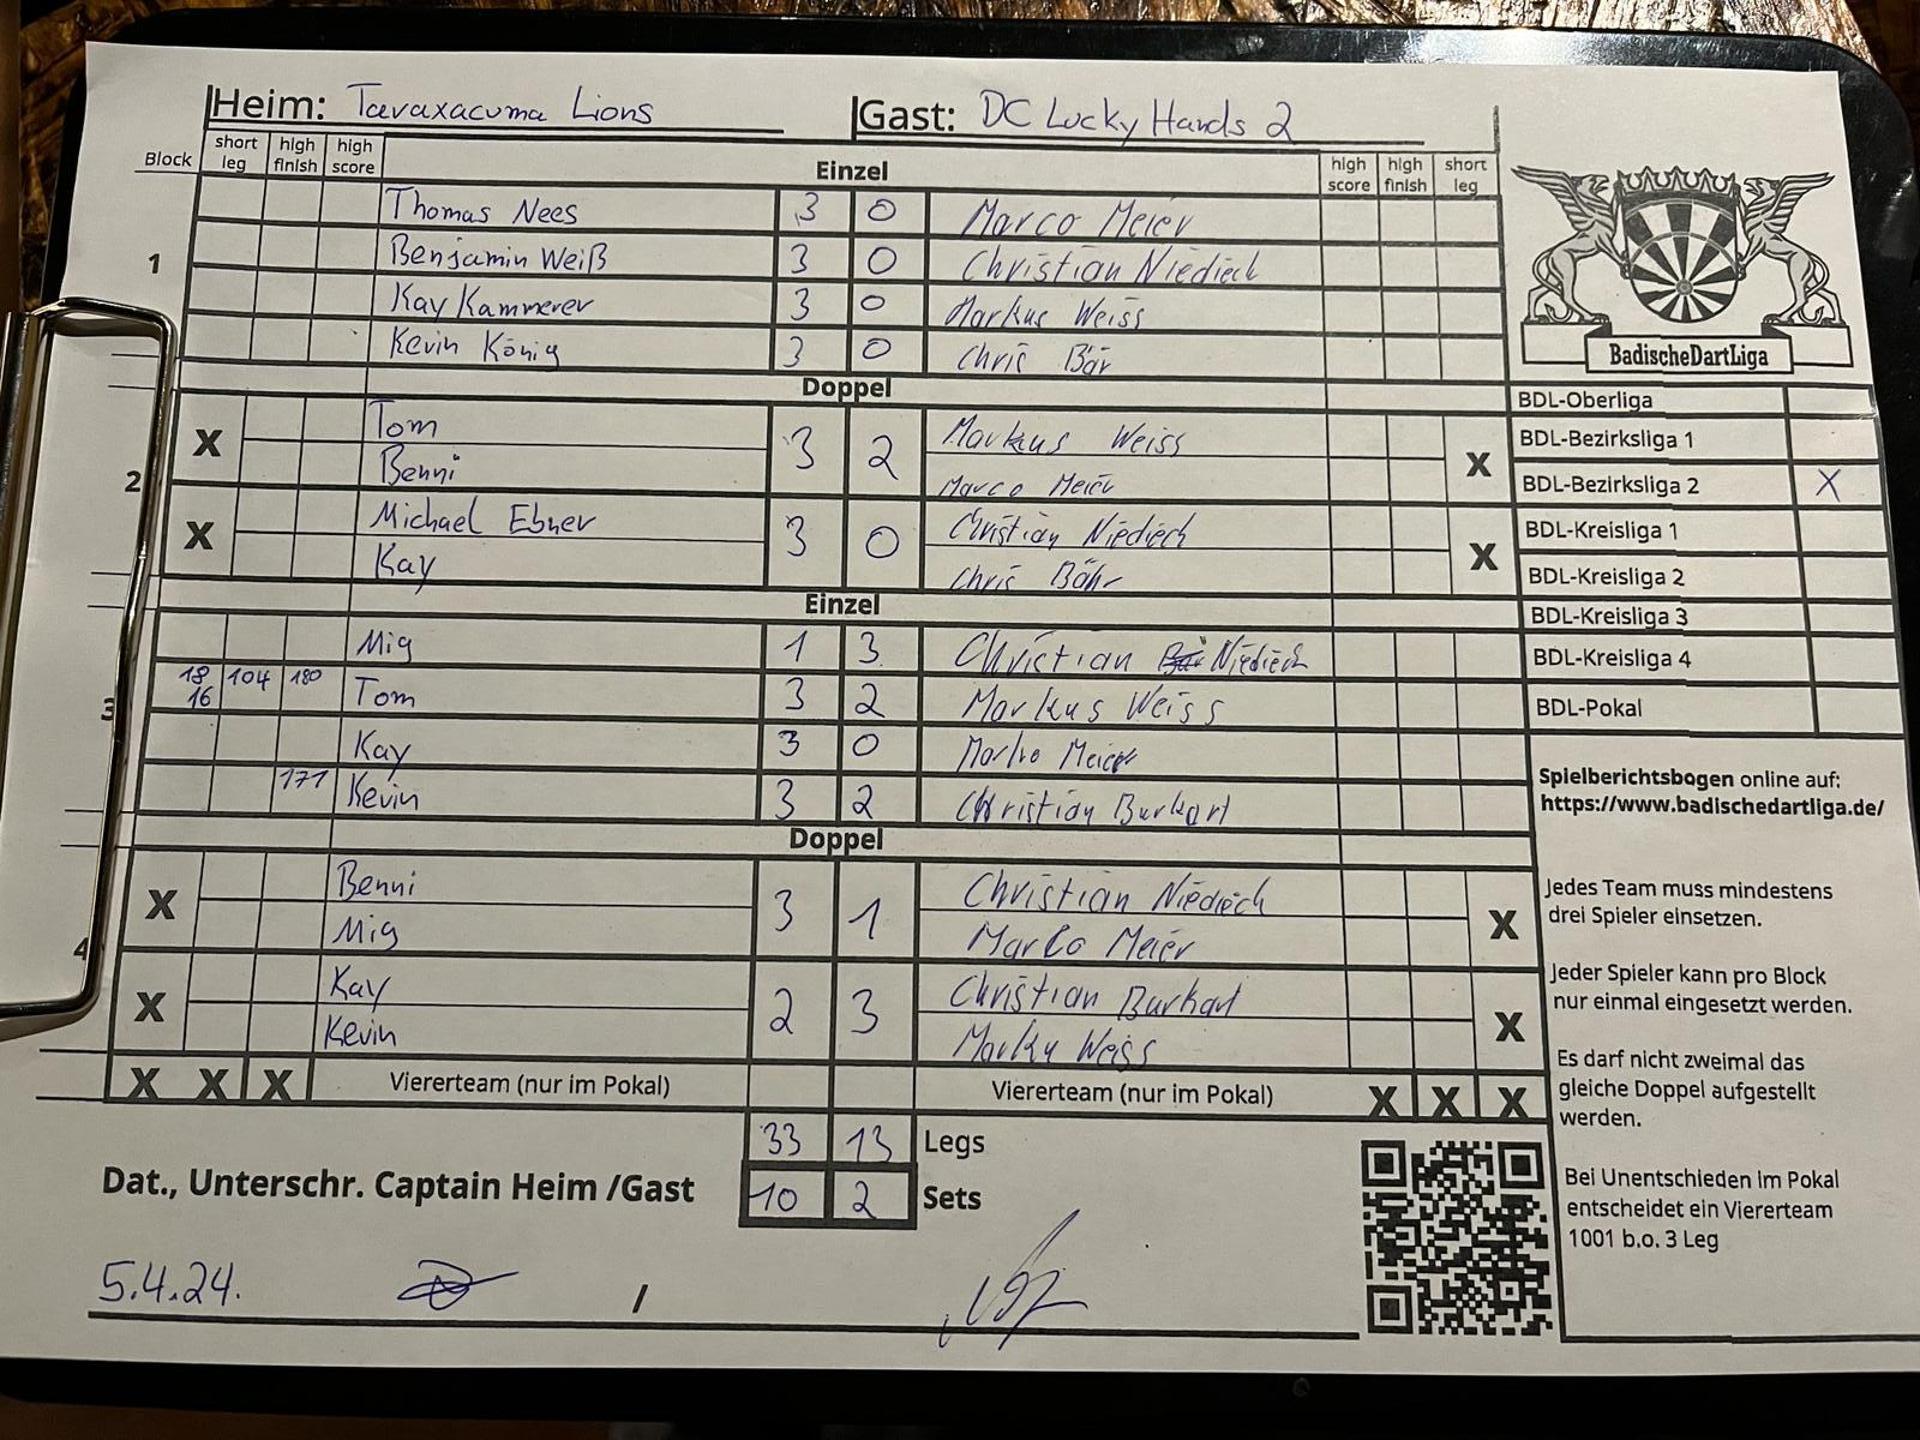 Heim: Taraxacuma Lions Gast: DC Lucky Hands 2
Block short leg high finish high score Einzel high score high finish short leg
Thomas Nees 3 0 Marco Meier
1 Benjamin Weiß 3 0 Christian Niedieck
Kay Kammerer 3 0 Markus Weiss
Kevin König 3 0 Chris Bär
BadischeDartLiga
Doppel
BDL-Oberliga
X Tom 3 2 Markus Weiss X
BDL-Bezirksliga 1
2 Benni Marco Meier
BDL-Bezirksliga 2 X
X Michael Ebner 3 0 Christian Niedieck X
BDL-Kreisliga 1
Kay Chris Bähr
BDL-Kreisliga 2
Einzel
BDL-Kreisliga 3
Mig 1 3 Christian Niedieck
BDL-Kreisliga 4
3 18 16 104 180 Tom 3 2 Markus Weiss
BDL-Pokal
Kay 3 0 Marko Meier
171 Kevin 3 2 Christian Burkart
Spielberichtsbogen online auf:
https://www.badischedartliga.de/
Doppel
X Benni 3 1 Christian Niedieck X
Mig Marco Meier
4
X Kay 2 3 Christian Burkart X
Kevin Marku Weiss
Jedes Team muss mindestens
drei Spieler einsetzen.
Jeder Spieler kann pro Block
nur einmal eingesetzt werden.
Es darf nicht zweimal das
gleiche Doppel aufgestellt
werden.
X X X Viererteam (nur im Pokal) Viererteam (nur im Pokal) X X X
33 13 Legs
Dat., Unterschr. Captain Heim /Gast 10 2 Sets
Bei Unentschieden im Pokal
entscheidet ein Viererteam
1001 b.o. 3 Leg
5.4.24. /